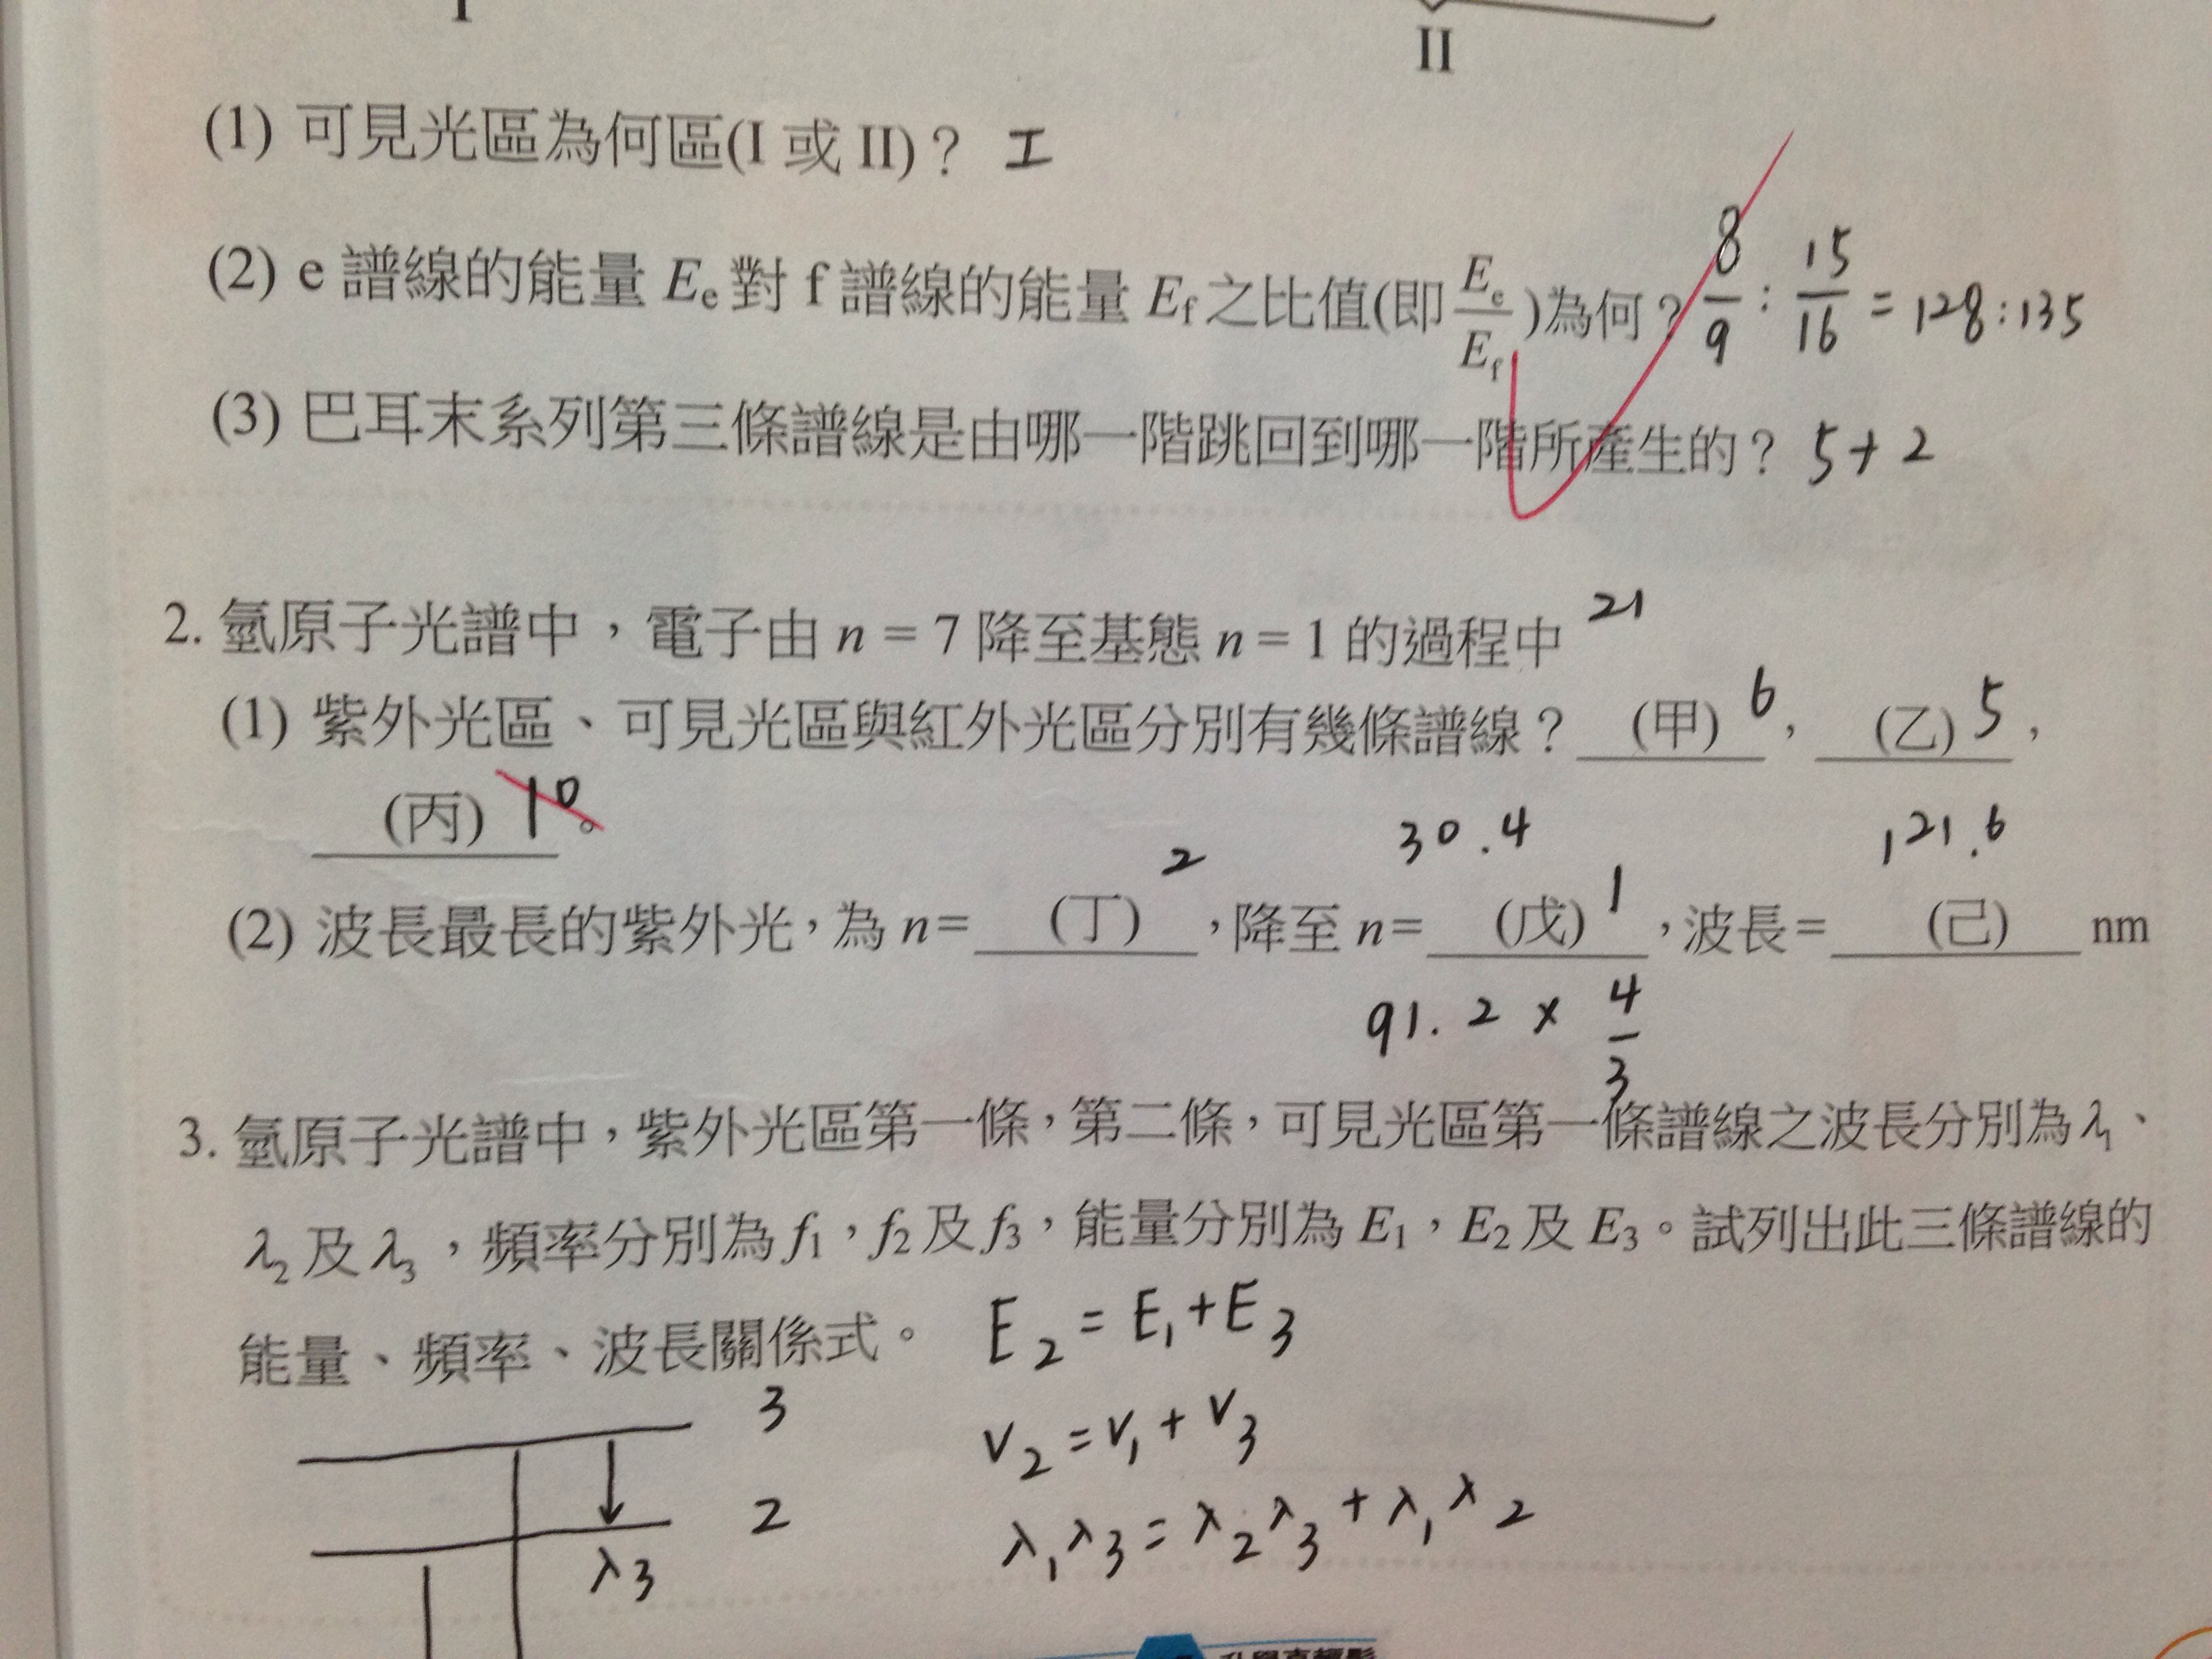 II
(1) 可見光區為何區(I 或 II)？ I
(2) e 譜線的能量 Ee 對 f 譜線的能量 Ef 之比值(即 Ee/Ef )為何？ 8/9 : 15/16 = 128:135
(3) 巴耳末系列第三條譜線是由哪一階跳回到哪一階所產生的？ 5→2
2. 氫原子光譜中，電子由 n = 7 降至基態 n = 1 的過程中 21
(1) 紫外光區、可見光區與紅外光區分別有幾條譜線？ (甲) 6 ， (乙) 5 ，
(丙) 10 。
30.4 121.6
(2) 波長最長的紫外光，為 n= (丁) 2 ，降至 n= (戊) 1 ，波長= (己) nm
91.2 × 4/3
3. 氫原子光譜中，紫外光區第一條，第二條，可見光區第一條譜線之波長分別為 λ1、
λ2 及 λ3，頻率分別為 f1，f2 及 f3，能量分別為 E1，E2 及 E3。試列出此三條譜線的
能量、頻率、波長關係式。 E2 = E1 + E3
3 ν2 = ν1 + ν3
2 λ1λ3 = λ2λ3 + λ1λ2
λ3